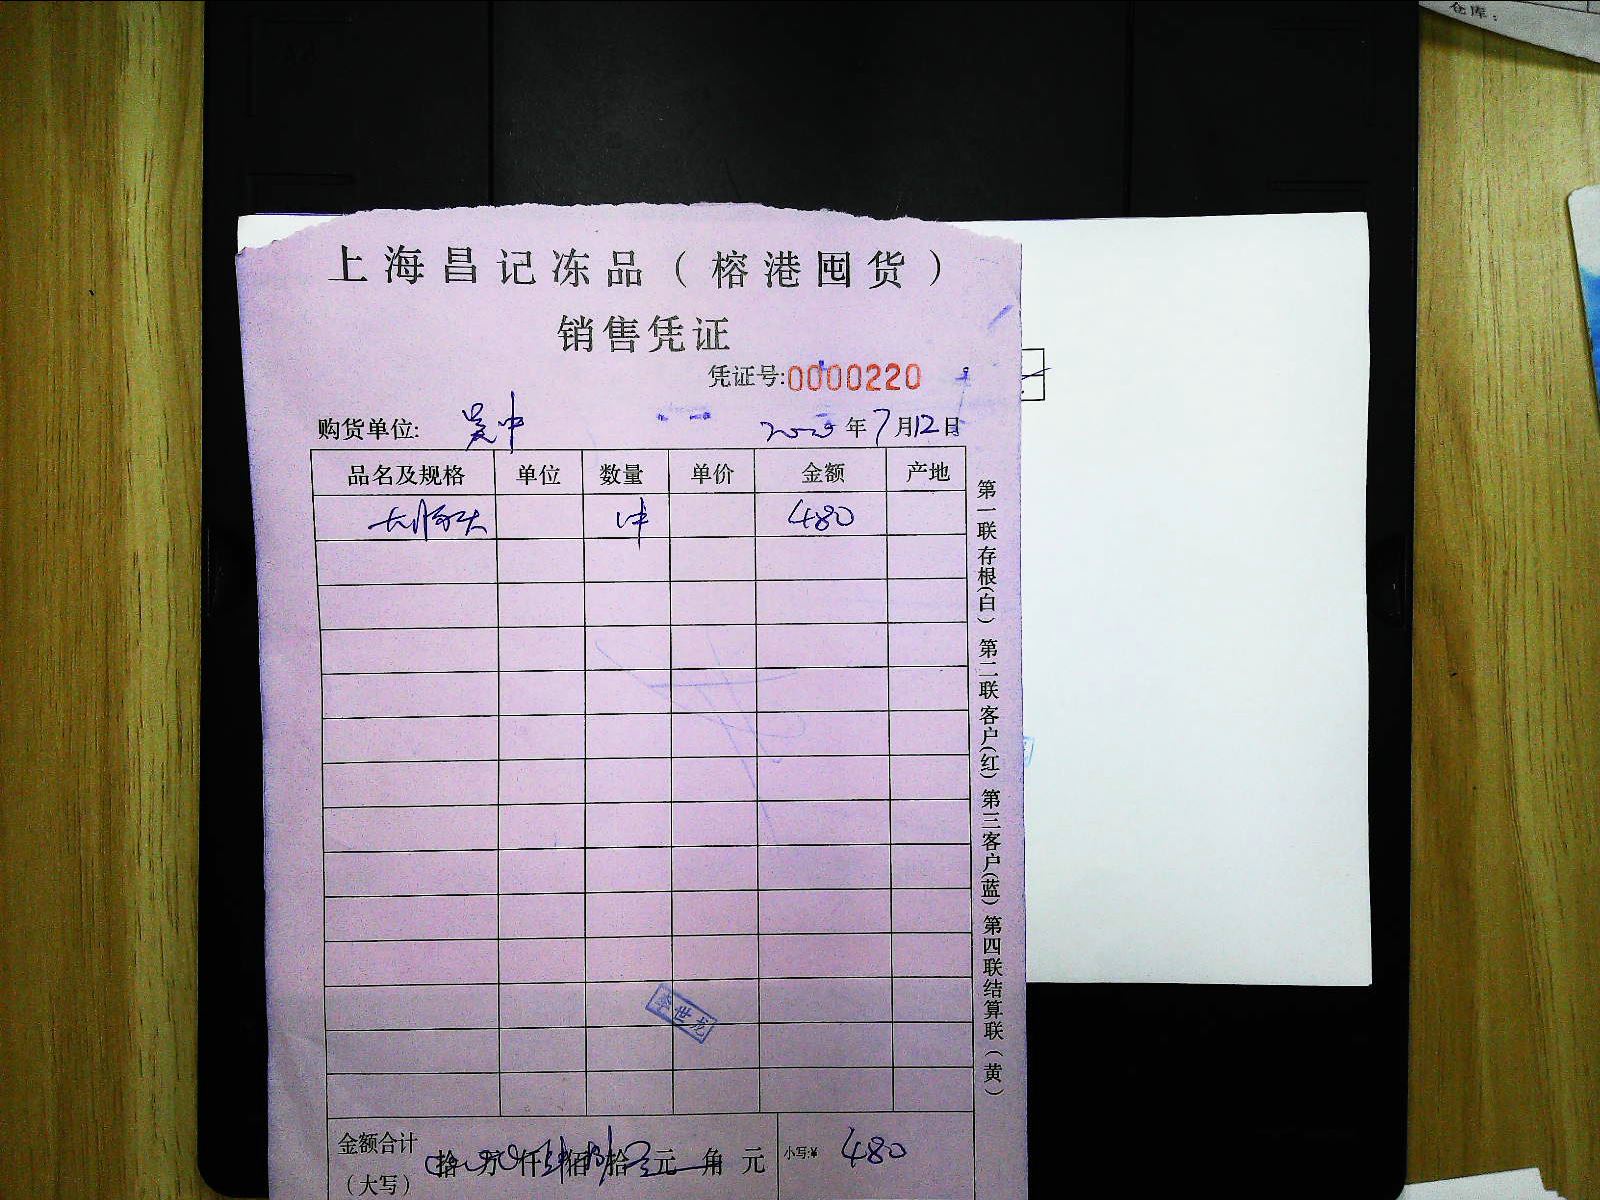 仓库：
上海昌记冻品（榕港囤货）
销售凭证
凭证号:0000220
购货单位: 吴中
年7月12日
品名及规格 单位 数量 单价 金额 产地
480
第一联存根(白) 第二联客户(红) 第三客户(蓝) 第四联结算联(黄)
李世龙
金额合计
（大写）
拾 万 仟 佰 拾 元 角 元
小写:¥ 480